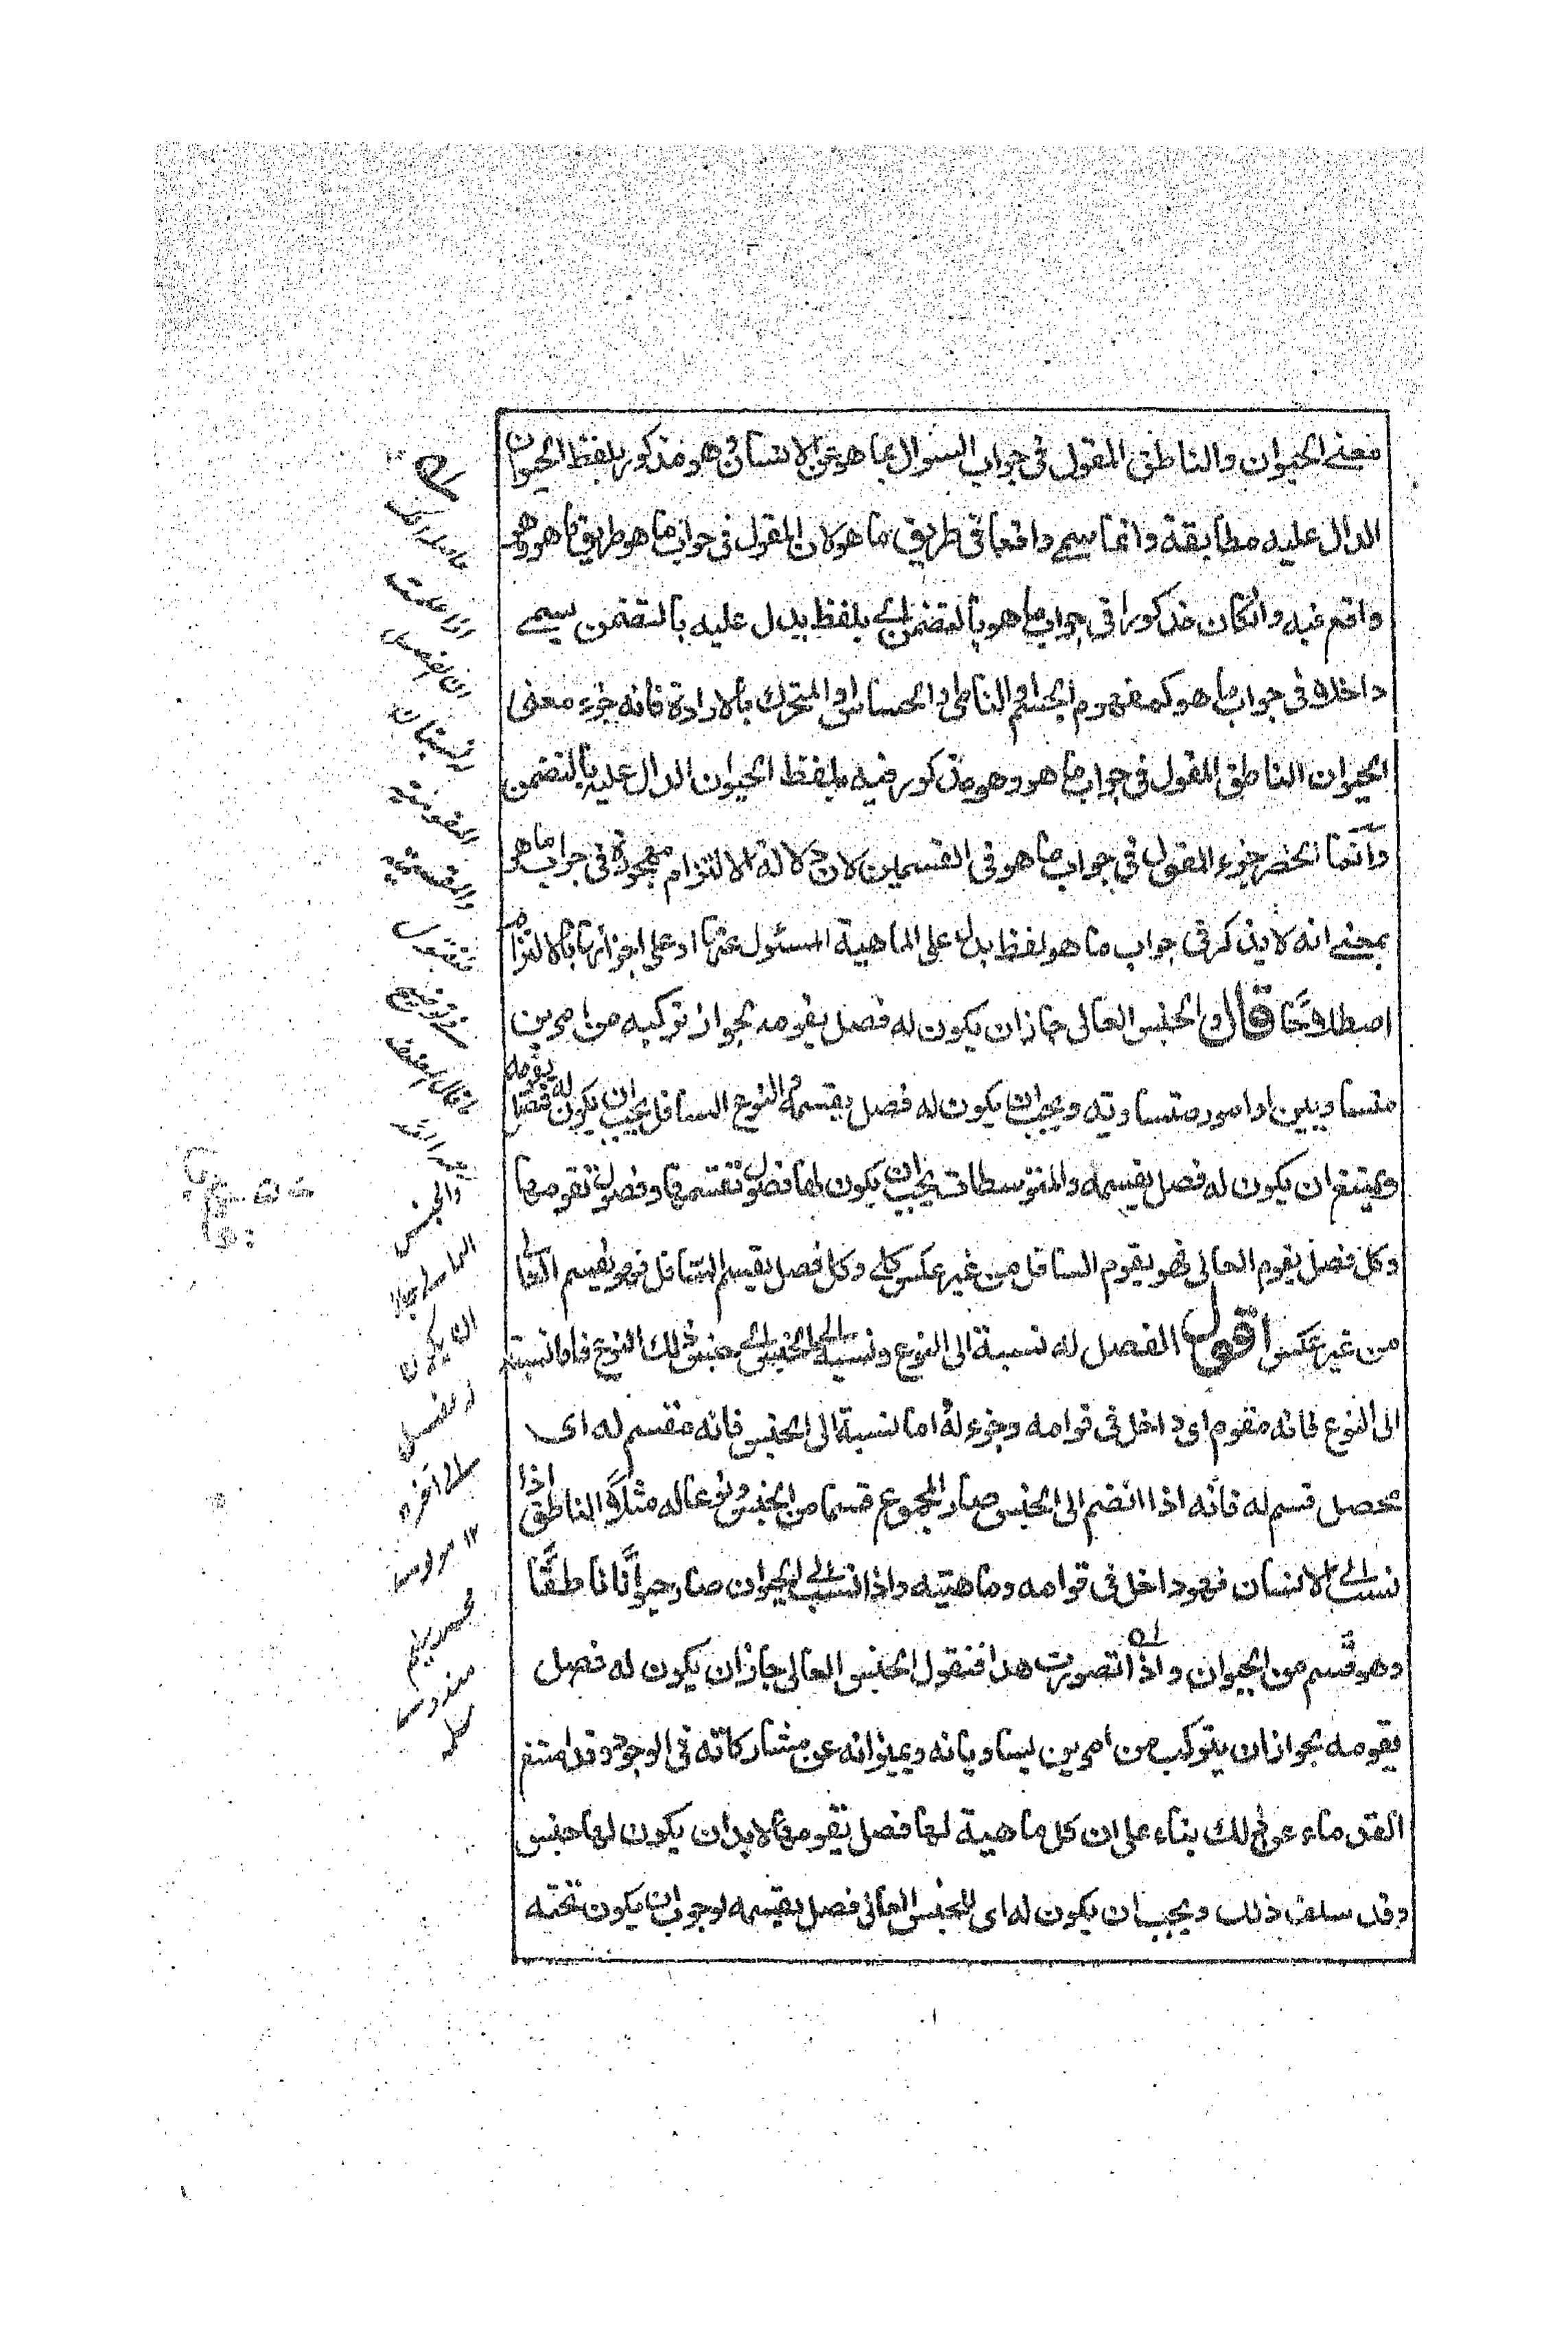 معنے الحيوان والناطق المقول فى جواب السوال بما هو عن الانسان فهو مذكور بلفظ الحيوان
الدال عليه مطابقة وانما سمے واقعا فى طريق ما هو لان المقول فى جواب ما هو طريق ما هو وهو
واقع فيه وانكان مذكورا فى جواب ما هو بالتضمن اے بلفظ يدل عليه بالتضمن يسمے
داخلا فى جواب ما هو كمفهوم الجسم او النامى او الحساس او المتحرك بالارادة فانه جزء معنى
الحيوان الناطق المقول فى جواب ما هو وهو مذكور فيه بلفظ الحيوان الدال عليه بالتضمن
وانما انحصر جزء المقول فى جواب ما هو فى القسمين لان دلالة الالتزام مهجورة فى جواب ما هو
بمعنے انه لا يذكر فى جواب ما هو لفظ يدل على الماهية المسئول عنها او على اجزائها بالالتزام
اصطلاحا قال والجنس العالى جاز ان يكون له فصل يقومه لجواز تركبه من امرين
متساويين او امور متساوية ويجب ان يكون له فصل يقسمه والنوع السافل يجب ان يكون له فصل يقومه
ويمتنع ان يكون له فصل يقسمه والمتوسطات يجب ان يكون لها فصول تقسمها وفصول تقومها
وكل فصل يقوم العالى فهو يقوم السافل من غير عكس كلے وكل فصل يقسم السافل فهو يقسم العالى
من غير عكس اقول الفصل له نسبة الى النوع ونسبة الى الجنس اى جنس ذلك النوع فاما نسبته
الى النوع فانه مقوم اى داخل فى قوامه وجزء له واما نسبة الى الجنس فانه مقسم له اى
محصل قسم له فانه اذا انضم الى الجنس صار المجموع قسما من الجنس ونوعا له مثلا الناطق اذا
نسب الى الانسان فهو داخل فى قوامه وماهيته واذا نسب الى الحيوان صار حيوانا ناطقا
وهو قسم من الحيوان واذا تصورت هذا فنقول الجنس العالى جاز ان يكون له فصل
يقومه لجواز ان يتركب من امرين يساويانه ويميزانه عن مشاركاته فى الوجود وقد امتنع
القدماء عن ذلك بناء على ان كل ماهية لها فصل يقومها لابد ان يكون لها جنس
وقد سلف ذلك ويجب ان يكون له اى للجنس العالى فصل يقسمه لوجوب ان يكون تحته
والجنس
العالى جاز
ان يكون
له فصل
الى آخره
۱۲ مولوى